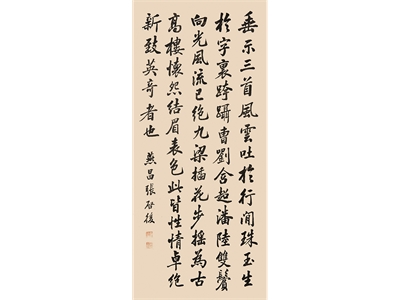 垂示三首風雲吐於行間珠玉生
於字裏跨躡曹劉含超潘陸雙鬢
向光風流已絕九梁插花步搖為古
高樓懷怨結眉表色此皆性情卓絕
新致英奇者也 燕昌張啓後